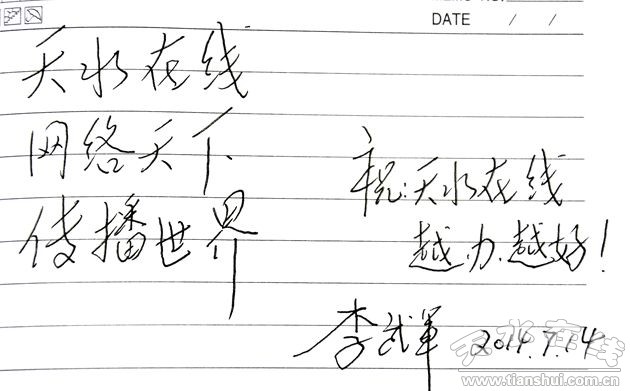 MEMO NO.
DATE / /
天水在线
网络天下
传播世界
祝:天水在线
越办越好!
李武军 2014.7.14
天水在线
www.tianshui.com.cn